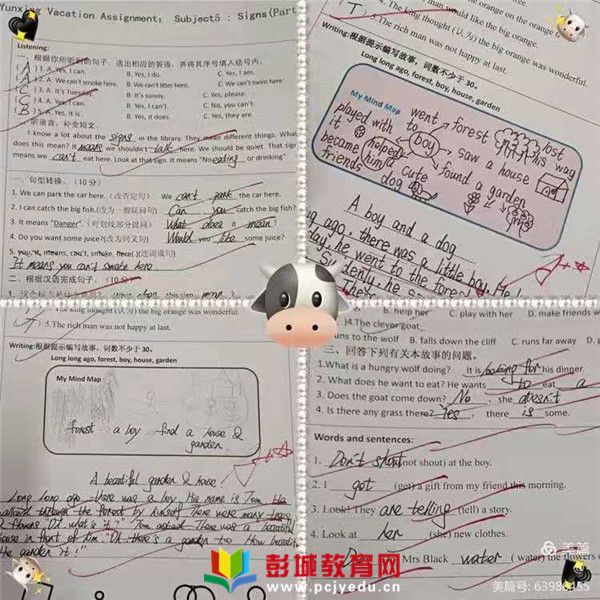 Yunxing Vacation Assignment: Subject5 : Signs(Part
Listening:
一、根据你所听到的句子，选出相应的答语，并将其序号填入括号内。
(A) 1. A. Yes, I can. B. Yes, I do. C. Yes, I am.
(A) 2. A. We can't smoke here. B. We can't litter here. C. We can't swim here.
(C) 3. A. It's Tuesday. B. It's sunny. C. Yes, please.
(C) 4. A. Yes, I can. B. Yes, I can't. C. No, you can't.
(B) 5. A. Yes, it is. B. Yes, it does. C. Yes, they are.
二、听录音，补全短文。
I know a lot about the signs in the library. They mean different things. What
does this mean? It means we shouldn't talk here. We should be quiet. That sign
means we can't eat here. Look at that sign. It means "No eating or drinking"
一、句型转换。（10 分）
1. We can park the car here.（改否定句） We can't park the car here.
2. I can catch the big fish.（改为一般疑问句） Can you catch the big fish?
3. It means "Danger".（对划线部分提问） What does it mean?
4. Do you want some juice?（改为同义句） Would you like some juice?
5. you, it, means, can't, smoke, here(.)（连词成句）
It means you can't smoke here.
二、根据汉语完成句子。（10分）
(T) 5.The rich man was not happy at last.
Writing:根据提示编写故事，词数不少于 30。
Long long ago, forest, boy, house, garden
My Mind Map
went to forest
lost his way
played with it
boy
saw a house
helped him
found a garden
became friends
a cute dog
A boy and a dog
ago, there was a little boy. He
day, he went to the forest
Suddenly, he s
There
5.The rich man was not happy at last.
Writing:根据提示编写故事，词数不少于 30。
Long long ago, forest, boy, house, garden
My Mind Map
forest a boy find a house &
garden.
A beautiful garden & house!
Long long ago there was a boy. His name is Tom. He
walked through the forest by himself. There were many trees
& flowers. "Oh what's it?" Tom asked. There was a beautiful
house in front of Tom. "Oh there's a garden too. How beautiful
the garden it!"
B. help her C. play with her D. make friends w
)4.The clever goat
uns to the wolf B. falls down the cliff C. runs far away D.
三、回答下列有关本故事的问题。
1.What is a hungry wolf doing? It is looking for his dinner.
2. What does he want to eat? He wants to eat a
3. Does the goat come down? No, she doesn't
4. Is there any grass there? Yes, there is some.
Words and sentences:
1. Don't shout (not shout) at the boy.
2. I got (get) a gift from my friend this morning.
3. Look! They are telling (tell) a story.
4. Look at her (she) new clothes.
Mrs Black water (water) the flowers
彭城教育网
www.pcjyedu.cn
美篇